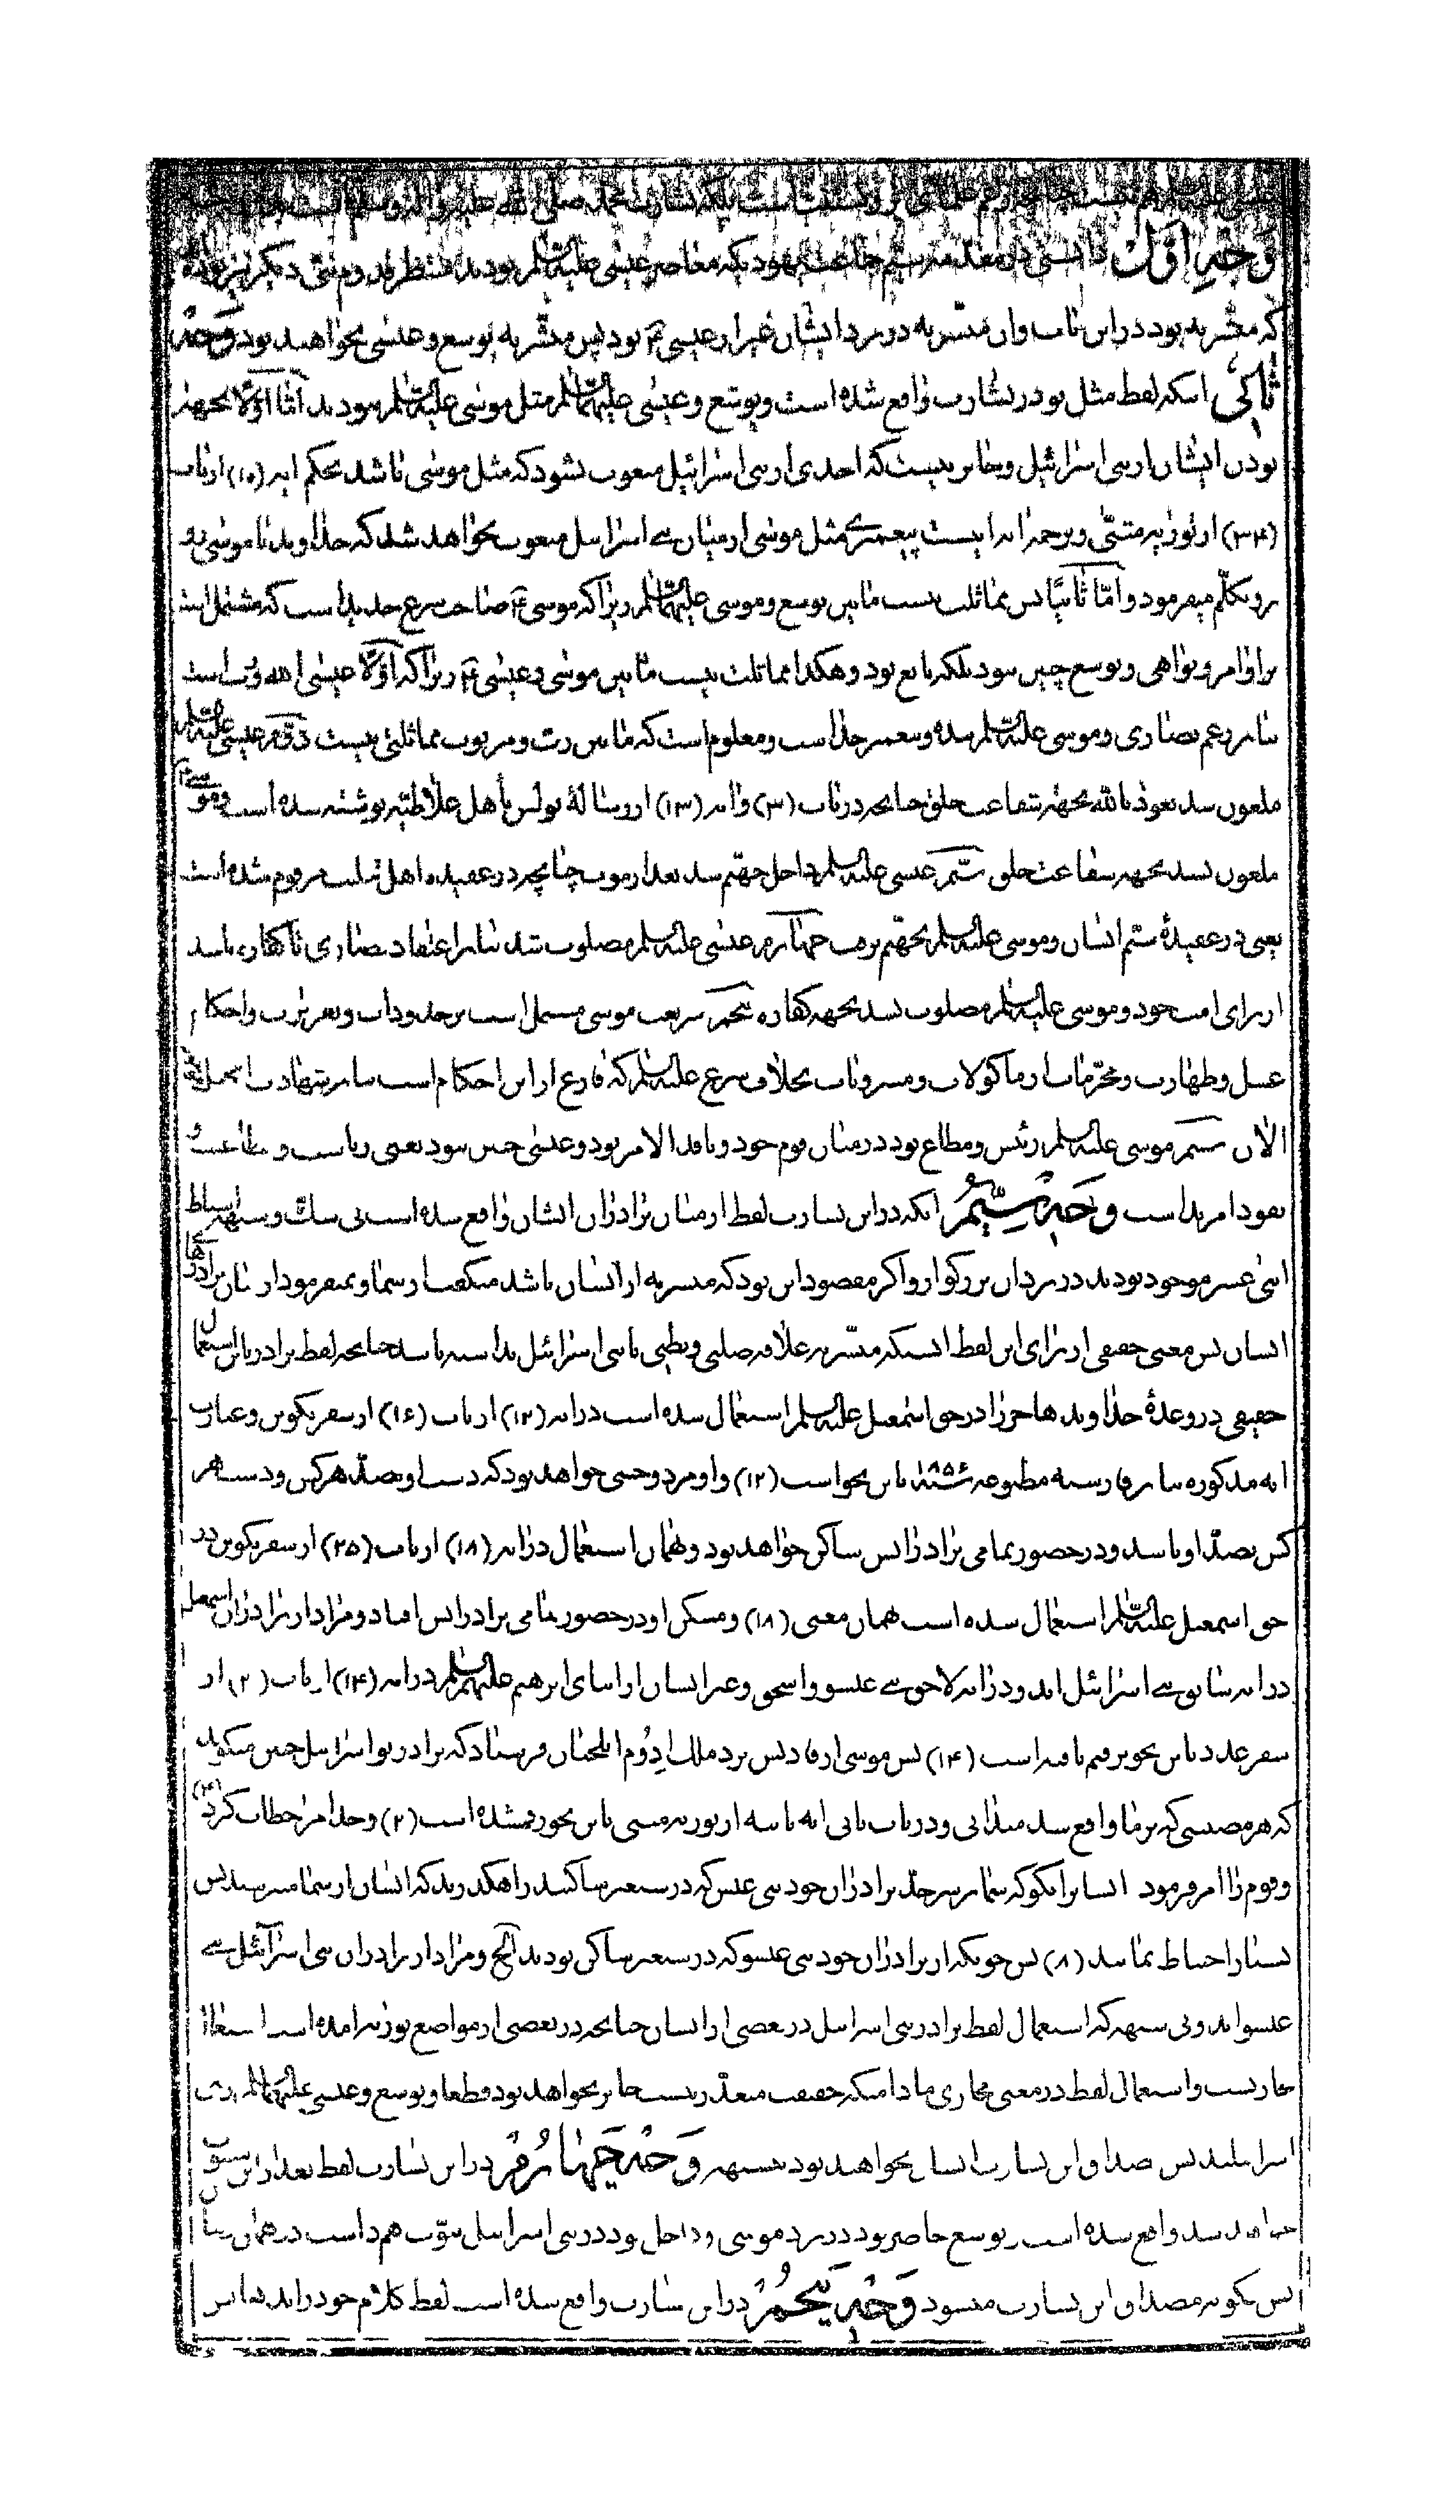 عیسی علیه السلام نیست چنانچه زعم علمای پروتستنت است بلکه بشارت محمد صلی الله علیه وآله وسلم است
وَجهِ اوّل دانستی در مقدمه ششم جماعت یهودیکه معاصر عیسی علیه السلام بودند منتظر قدوم نبی دیگر نیز بودند
که مبشر به بود در این باب وان مبشر به در نزد ایشان غیر از عیسی ع بود پس مبشر به یوشع و عیسی نخواهند بود وَجه
ثانی اینکه لفظ مثل تو در بشارت واقع شده است و یوشع و عیسی علیهما السلام مثل موسی علیه السلام نبودند اما اولا بجهة
بودن ایشان از بنی اسرائیل و جایز نیست که احدی از بنی اسرائیل مبعوث بشود که مثل موسی باشد بحکم ایه (۱۰) از باب
(۳۴) از توریة مثنی و ترجمه ایه اینست پیغمبری مثل موسی از میان بنی اسرائیل مبعوث نخواهد شد که خداوند با موسی رو
برو تکلم میفرمود و امّا ثانیًا پس مماثلت نیست مابین یوشع و موسی علیهما السلام زیرا که موسی ع صاحب شرع جدید است که مشتمل است
بر اوامر و نواهی و یوشع چنین نبود بلکه تابع بود و هکذا مماثلت نیست مابین موسی و عیسی ع زیرا که اوّلًا عیسی اله و رب است
بنابر زعم نصاری و موسی علیه السلام بنده و پیغمبر خداست و معلوم است که مابین رب و مربوب مماثلتی نیست دوّم عیسی علیه السلام
ملعون شد نعوذ بالله بجهة شفاعت خلق چنانچه در باب (۳) وایه (۱۳) از رسالهٔ پولس بأهل غلاطیه نوشته شده است و موسی ع
ملعون نشد بجهة شفاعت خلق سیّم عیسی علیه السلام داخل جهنّم شد بعد از موت چنانچه در عقیده اهل تثلیث مرقوم شده است
یعنی در عقیدهٔ ستم ایشان و موسی علیه السلام بجهنّم نرفت چهارم عیسی علیه السلام مصلوب شد بنابر اعتقاد نصاری تا کفاره باشد
از برای امت خود و موسی علیه السلام مصلوب نشد بجهة کفاره پنجم شریعت موسی مشتمل است بر حدودات و تعزیرات و احکام
غسل و طهارت و محرّمات از ماکولات و مشروبات بخلاف شرع علیه السلام که فارغ از این احکام است بنابر شهادت انجیل
الان ششم موسی علیه السلام رئیس و مطاع بود در میان قوم خود و نافذ الامر بود و عیسی چنین نبود یعنی ریاست و مطاعیت و
نفوذ امر نداشت وَجهِ سیّم انکه در این بشارت لفظ از میان برادران ایشان واقع شده است بی شک و شبهه اسباط
اثنی عشر موجود بودند در نزدان بزرگوار و اگر مقصود این بود که مبشر به از ایشان باشد میگفت از شما و نمیفرمود از میان برادرهای
ایشان پس معنی حقیقی از برای این لفظ انستکه مبشر به علاقه صلبی و بطنی با بنی اسرائیل نداشته باشد چنانچه لفظ برادر باین استعمال
حقیقی در وعدهٔ خداوند هاجر را در حق اسمعیل علیه السلام استعمال شده است در ایه (۱۲) از باب (۱۶) از سفر تکوین و عبارت
ایه مذکوره بنابر فارسیه مطبوعه سنه ۱۸۵۶ باین نحواست (۱۲) و او مرد وحشی خواهد بود که دست او بضدّ هر کس و دست هر
کس بضدّ او باشد و در حضور تمامی برادرانش ساکن خواهد بود و همان استعمال در ایه (۱۸) از باب (۲۵) از سفر تکوین در
حق اسمعیل علیه السلام استعمال شده است همان معنی (۱۸) و مسکن او در حضور تمامی برادرانش افتاد و مراد از برادران اسمعیل
در ایه سابق بنی اسرائیل اند و در ایه لاحق بنی عیسو و اسحق و غیر ایشان از ابنای ابرهیم علیهم السلام در ایه (۱۴) از باب (۲۰) از
سفر عدد باین نحو رقم یافته است (۱۴) پس موسی از قادیس نزد ملک اِدُوم ایلچیان فرستاد که برادر تو اسرائیل چنین میگوید
که هر مصیبتی که بر ما واقع شد میدانی و در باب ثانی ایه ثانیه از توریة مثنی باین نحو رقم شده است (۲) و خدا مرا خطاب کرد (۴)
و قوم را امر فرمود ایشانرا بگو که شما بر سرحد برادران خود بنی عیص که در سعیر ساکنند راه گذرید که ایشان از شما میترسند پس
بسیار احتیاط نمائید (۸) پس چونکه از برادران خود بنی عیسو که در سعیر ساکن بودند الخ و مراد از برادران بنی اسرائیل بنی
عیسو اند و بی شبهه که استعمال لفظ برادر بنی اسرائیل در بعضی از ایشان چنانچه در بعضی از مواضع توریة امده است استعمال
مجازیست و استعمال لفظ در معنی مجازی مادامیکه حقیقت متعذّر نیست جایز نخواهد بود قطعا و یوشع و عیسی علیهما السلام از بنی
اسرائیلند پس مصداق این بشارت ایشان نخواهند بود بی شبهه وَجهِ چَهارُم در این بشارت لفظ بعد از این مبعوث
خواهد شد واقع شده است و یوشع حاضر بود در نزد موسی و داخل بود در بنی اسرائیل نبوّت هم داشت در همان زمان
پس چگونه مصداق این بشارت میشود وَجهِ پَنجُم در این بشارت واقع شده است لفظ کلام خود را بدهانش